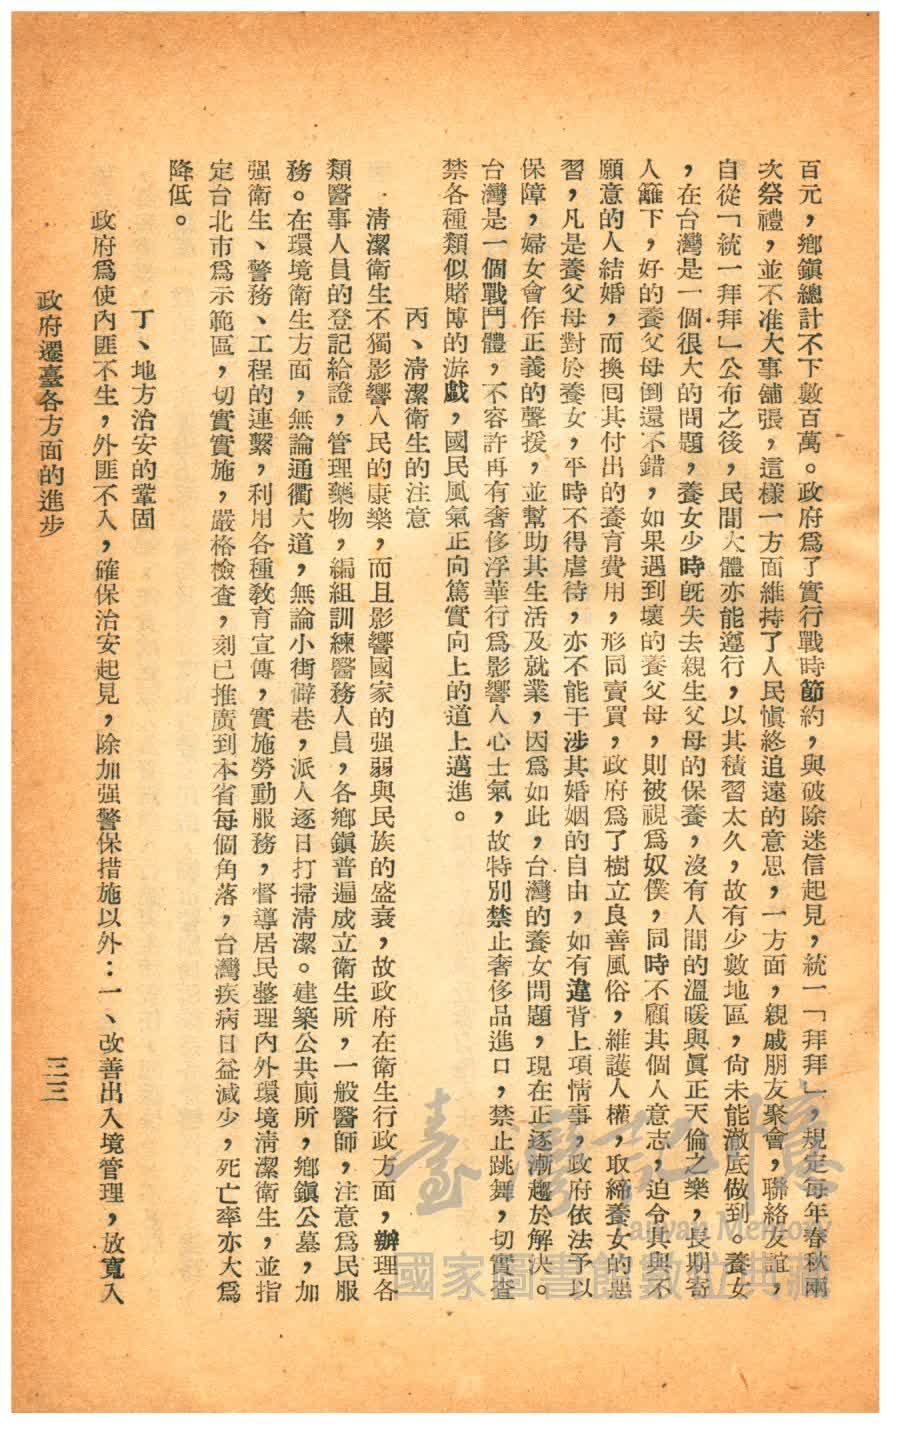 百元，鄉鎭總計不下數百萬。政府爲了實行戰時節約，與破除迷信起見，統一「拜拜」，規定每年春秋兩
次祭禮，並不准大事舖張，這樣一方面維持了人民愼終追遠的意思，一方面，親戚朋友聚會，聯絡友誼，
自從「統一拜拜」公布之後，民間大體亦能遵行，以其積習太久，故有少數地區，尙未能澈底做到。養女
，在台灣是一個很大的問題，養女少時旣失去親生父母的保養，沒有人間的溫暖與眞正天倫之樂，長期寄
人籬下，好的養父母倒還不錯，如果遇到壞的養父母，則被視爲奴僕，同時不顧其個人意志，迫令其與不
願意的人結婚，而換囘其付出的養育費用，形同賣買，政府爲了樹立良善風俗，維護人權，取締養女的惡
習，凡是養父母對於養女，平時不得虐待，亦不能干涉其婚姻的自由，如有違背上項情事，政府依法予以
保障，婦女會作正義的聲援，並幫助其生活及就業，因爲如此，台灣的養女問題，現在正逐漸趨於解決。
台灣是一個戰鬥體，不容許再有奢侈浮華行爲影響人心士氣，故特別禁止奢侈品進口，禁止跳舞，切實查
禁各種類似賭博的游戱，國民風氣正向篤實向上的道上邁進。
丙、淸潔衛生的注意
淸潔衛生不獨影響人民的康樂，而且影響國家的强弱與民族的盛衰，故政府在衛生行政方面，辦理各
類醫事人員的登記給證，管理藥物，編組訓練醫務人員，各鄉鎭普遍成立衛生所，一般醫師，注意爲民服
務。在環境衛生方面，無論通衢大道，無論小街僻巷，派人逐日打掃淸潔。建築公共廁所，鄉鎭公墓，加
强衛生、警務、工程的連繫，利用各種敎育宣傳，實施勞動服務，督導居民整理內外環境淸潔衛生，並指
定台北市爲示範區，切實實施，嚴格檢查，刻已推廣到本省每個角落，台灣疾病日益減少，死亡率亦大爲
降低。
丁、地方治安的鞏固
政府爲使內匪不生，外匪不入，確保治安起見，除加强警保措施以外：一、改善出入境管理，放寬入
政府遷臺各方面的進步
三三
臺灣記憶
Taiwan Memory
國家圖書館數位典藏